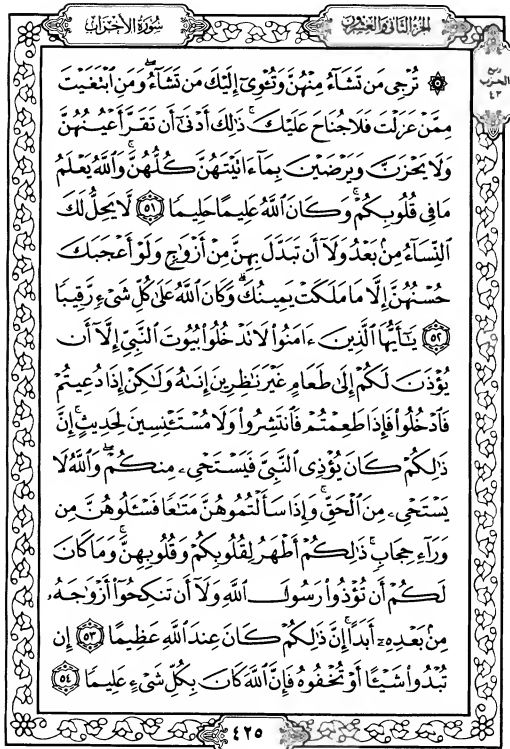 سُورَةُ الأَحْزَابِ
الجُزْءُ الثَّانِي وَالعِشْرُونَ
ربع
الحزب
٤٣
۞ تُرْجِي مَن تَشَآءُ مِنْهُنَّ وَتُـْٔوِيٓ إِلَيْكَ مَن تَشَآءُۖ وَمَنِ ٱبْتَغَيْتَ
مِمَّنْ عَزَلْتَ فَلَا جُنَاحَ عَلَيْكَۚ ذَٰلِكَ أَدْنَىٰٓ أَن تَقَرَّ أَعْيُنُهُنَّ
وَلَا يَحْزَنَّ وَيَرْضَيْنَ بِمَآ ءَاتَيْتَهُنَّ كُلُّهُنَّۚ وَٱللَّهُ يَعْلَمُ
مَا فِي قُلُوبِكُمْۚ وَكَانَ ٱللَّهُ عَلِيمًا حَلِيمًا ٥١ لَّا يَحِلُّ لَكَ
ٱلنِّسَآءُ مِنۢ بَعْدُ وَلَآ أَن تَبَدَّلَ بِهِنَّ مِنْ أَزْوَٰجٍ وَلَوْ أَعْجَبَكَ
حُسْنُهُنَّ إِلَّا مَا مَلَكَتْ يَمِينُكَۗ وَكَانَ ٱللَّهُ عَلَىٰ كُلِّ شَيْءٍ رَّقِيبًا
٥٢ يَٰٓأَيُّهَا ٱلَّذِينَ ءَامَنُوا۟ لَا تَدْخُلُوا۟ بُيُوتَ ٱلنَّبِيِّ إِلَّآ أَن
يُؤْذَنَ لَكُمْ إِلَىٰ طَعَامٍ غَيْرَ نَٰظِرِينَ إِنَىٰهُ وَلَٰكِنْ إِذَا دُعِيتُمْ
فَٱدْخُلُوا۟ فَإِذَا طَعِمْتُمْ فَٱنتَشِرُوا۟ وَلَا مُسْتَـْٔنِسِينَ لِحَدِيثٍۚ إِنَّ
ذَٰلِكُمْ كَانَ يُؤْذِي ٱلنَّبِيَّ فَيَسْتَحْيِۦ مِنكُمْۖ وَٱللَّهُ لَا
يَسْتَحْيِۦ مِنَ ٱلْحَقِّۚ وَإِذَا سَأَلْتُمُوهُنَّ مَتَٰعًا فَسْـَٔلُوهُنَّ مِن
وَرَآءِ حِجَابٍۚ ذَٰلِكُمْ أَطْهَرُ لِقُلُوبِكُمْ وَقُلُوبِهِنَّۚ وَمَا كَانَ
لَكُمْ أَن تُؤْذُوا۟ رَسُولَ ٱللَّهِ وَلَآ أَن تَنكِحُوٓا۟ أَزْوَٰجَهُۥ
مِنۢ بَعْدِهِۦٓ أَبَدًاۚ إِنَّ ذَٰلِكُمْ كَانَ عِندَ ٱللَّهِ عَظِيمًا ٥٣ إِن
تُبْدُوا۟ شَيْـًٔا أَوْ تُخْفُوهُ فَإِنَّ ٱللَّهَ كَانَ بِكُلِّ شَيْءٍ عَلِيمًا ٥٤
٤٢٥